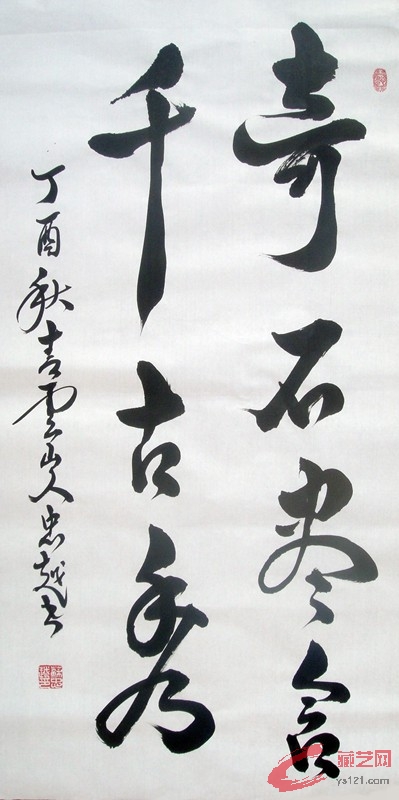 奇石尽含
千古秀
丁酉秋青云山人忠越书
藏艺网
ys121.com